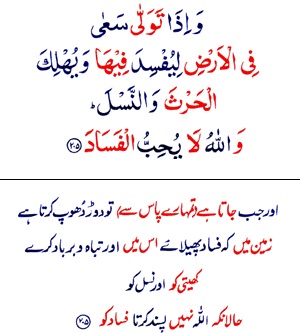 وَاِذَا تَوَلّٰى سَعٰى
فِى الْاَرْضِ لِيُفْسِدَ فِيْهَا وَيُهْلِكَ
الْحَرْثَ وَالنَّسْلَ ؕ
وَاللّٰهُ لَا يُحِبُّ الْفَسَادَ ﴿۲۰۵﴾
اور جب جاتا ہے (تمہارے پاس سے) تو دوڑ دھوپ کرتا ہے
زمین میں کہ فساد پھیلائے اس میں اور تباہ و برباد کرے
کھیتی کو اور نسل کو
حالانکہ اللہ نہیں پسند کرتا فساد کو ﴿۲۰۵﴾